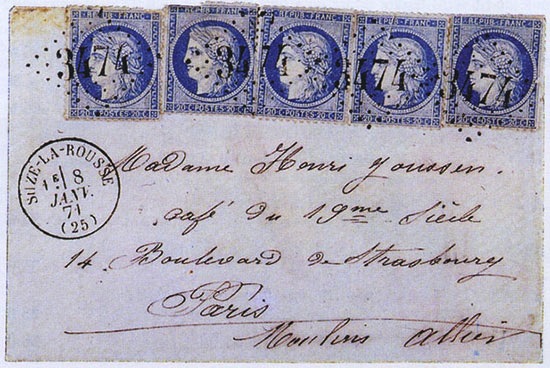 REPUB·FRANC· REPUB·FRANC· REPUB·FRANC· REPUB·FRANC· REPUB·FRANC·
3474 3474 3474 3474
20 C POSTES 20 C 20 C POSTES 20 C 20 C POSTES 20 C 20 C POSTES 20 C 20 C POSTES 20 C
SUZE-LA-ROUSSE
1E 8
JANV.
71
(25)
Madame Henri Goussen.
café du 19me Siècle
14 Boulevard de Strasbourg
Paris
Moulins Allier